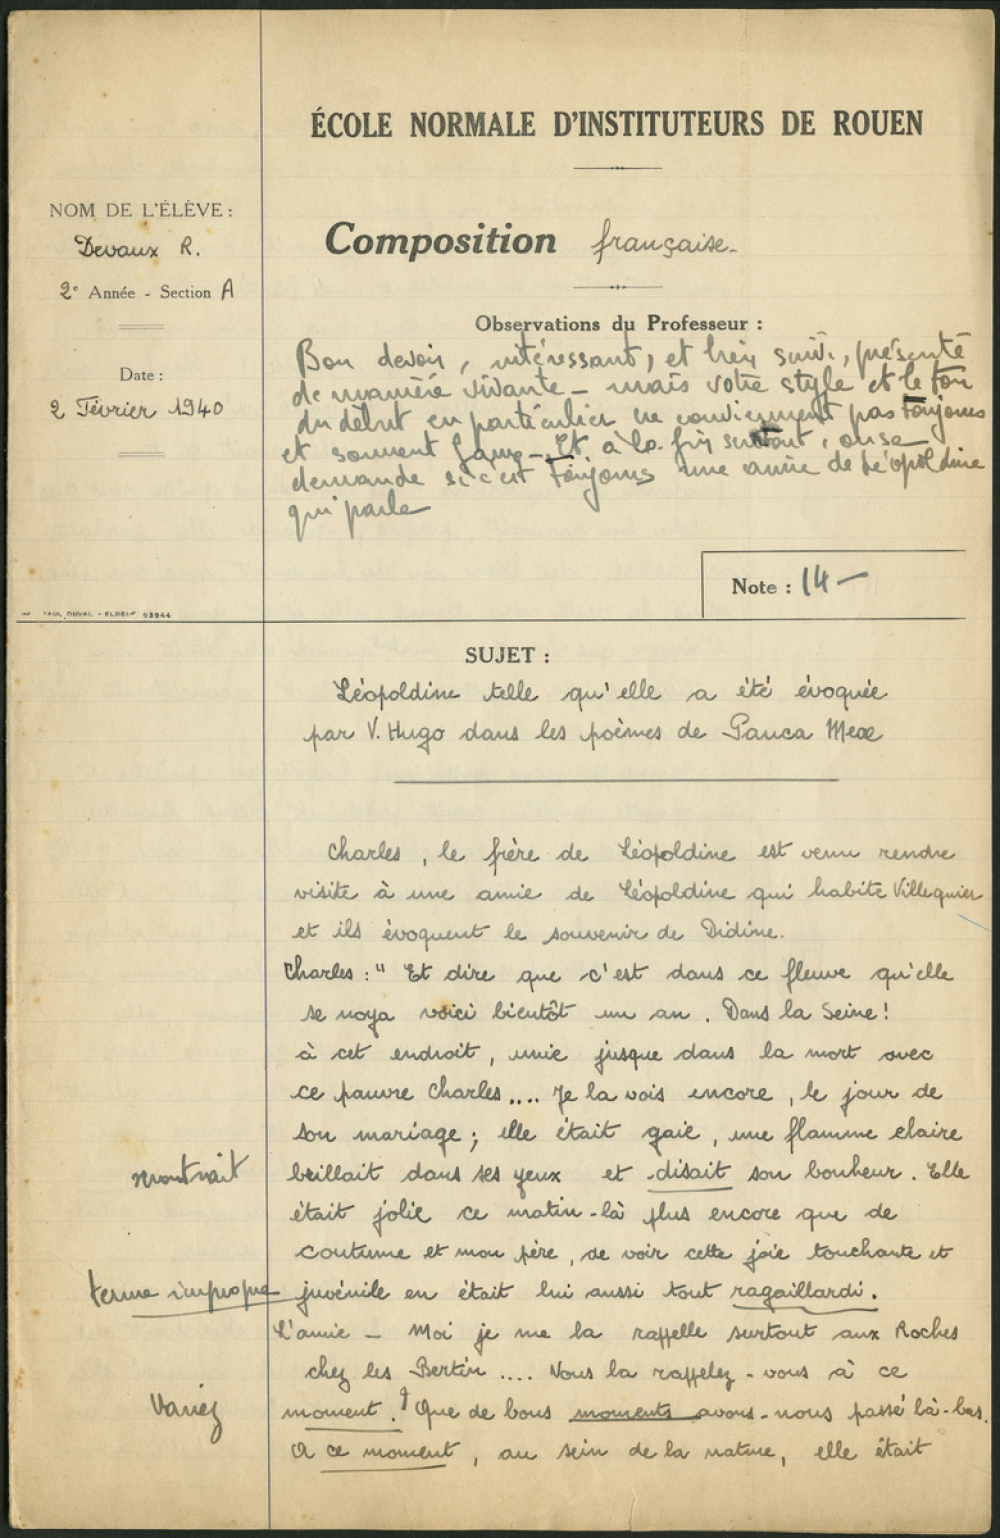 ÉCOLE NORMALE D'INSTITUTEURS DE ROUEN
NOM DE L'ÉLÈVE :
Devaux R.
2e Année - Section A
Date :
2 Février 1940
Composition française.
Observations du Professeur :
Bon devoir, intéressant, et bien suivi, présenté
de manière vivante - mais votre style et le ton
du début en particulier ne conviennent pas toujours
et sonnent faux - Et à la fin surtout, on se
demande si c'est toujours une amie de Léopoldine
qui parle
Note : 14 -
PAUL DUVAL - ELBEUF 93944
SUJET :
Léopoldine telle qu'elle a été évoquée
par V. Hugo dans les poèmes de Pauca Meae
Charles, le frère de Léopoldine est venu rendre
visite à une amie de Léopoldine qui habite Villequier
et ils évoquent le souvenir de Didine.
Charles : " Et dire que c'est dans ce fleuve qu'elle
se noya voici bientôt un an. Dans la Seine !
à cet endroit, unie jusque dans la mort avec
ce pauvre Charles.... Je la vois encore, le jour de
son mariage ; elle était gaie, une flamme claire
montrait
brillait dans ses yeux et disait son bonheur. Elle
était jolie ce matin-là plus encore que de
coutume et mon père, de voir cette joie touchante et
terme impropre
juvénile en était lui aussi tout ragaillardi.
L'amie - Moi je me la rappelle surtout aux Roches
chez les Bertin .... Vous la rappelez-vous à ce
Variez
moment. ? Que de bons moments avons-nous passé là-bas.
A ce moment, au sein de la nature, elle était